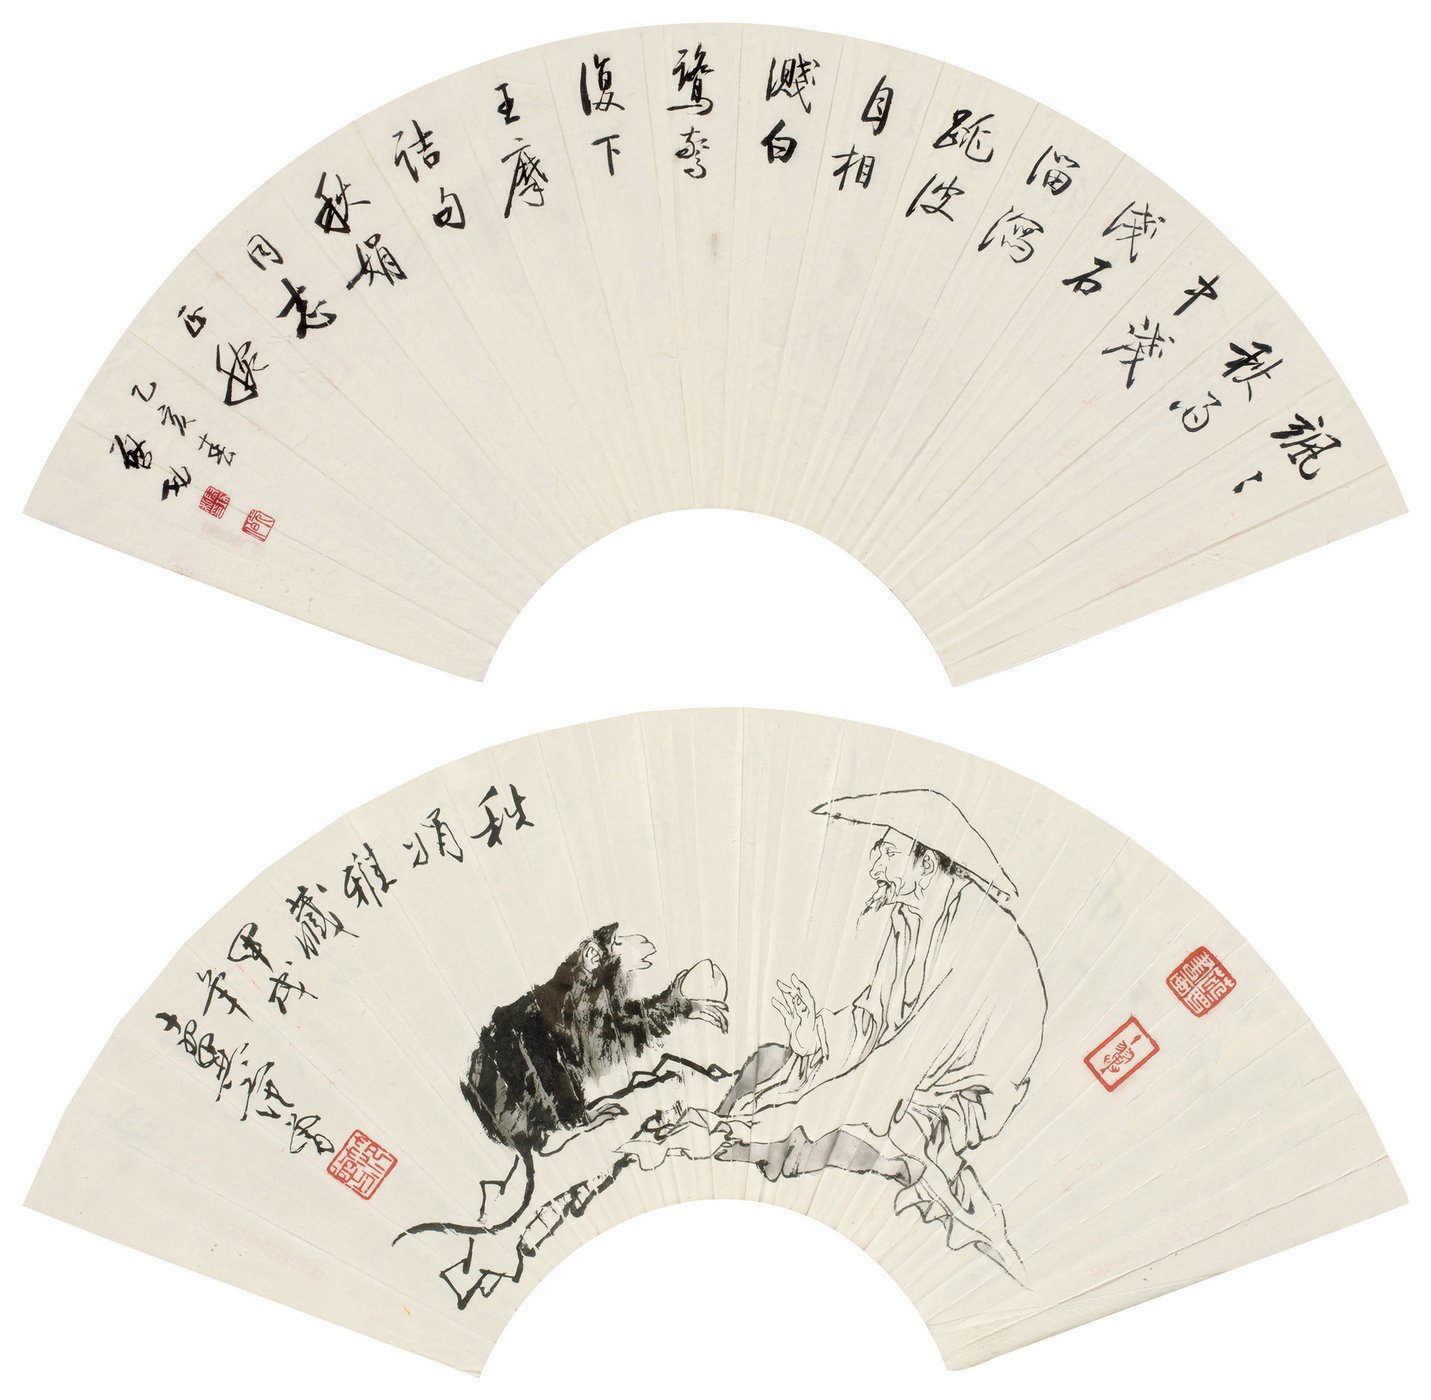 颯〻
秋雨
中淺
淺石
溜瀉
跳波
自相
濺白
鷺驚
復下
王摩
詰句
秋娟
同志
正
乙亥春
啟功
秋娟雅藏
甲戌
年
范曾